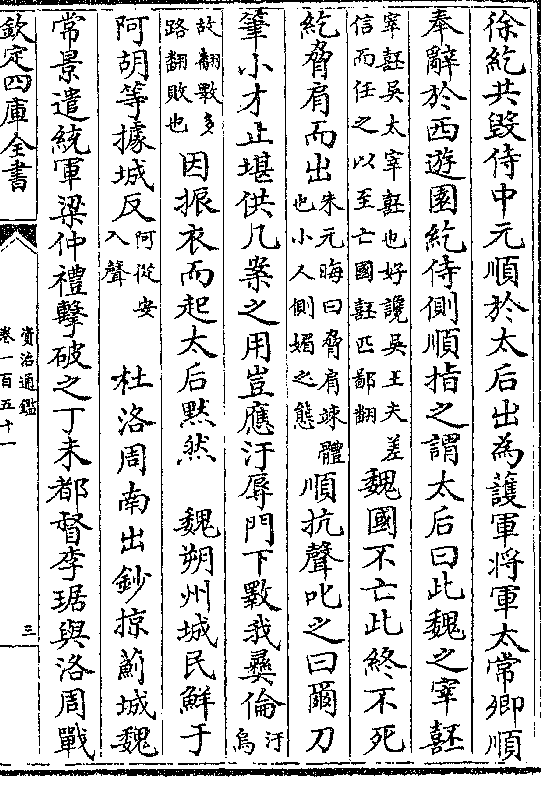 徐紇共毀侍中元順於太后出為護軍将軍太常卿順
奉辭於西遊園紇侍側順指之謂太后曰此魏之宰嚭
宰嚭吳太宰嚭也好讒吳王夫差
信而任之以至亡國嚭匹鄙翻
魏國不亡此終不死
紇脅肩而出
朱元晦曰脅肩竦體
也小人側媚之態
順抗聲叱之曰爾刀
筆小才止堪供几案之用豈應汙辱門下斁我彞倫
汙烏
故翻斁多
路翻敗也
因振衣而起太后默然 魏朔州城民鮮于
阿胡等據城反
阿從安
入聲
杜洛周南出鈔掠薊城魏
常景遣統軍梁仲禮擊破之丁未都督李琚與洛周戰
欽定四庫全書
資治通鑑
卷一百五十一
三